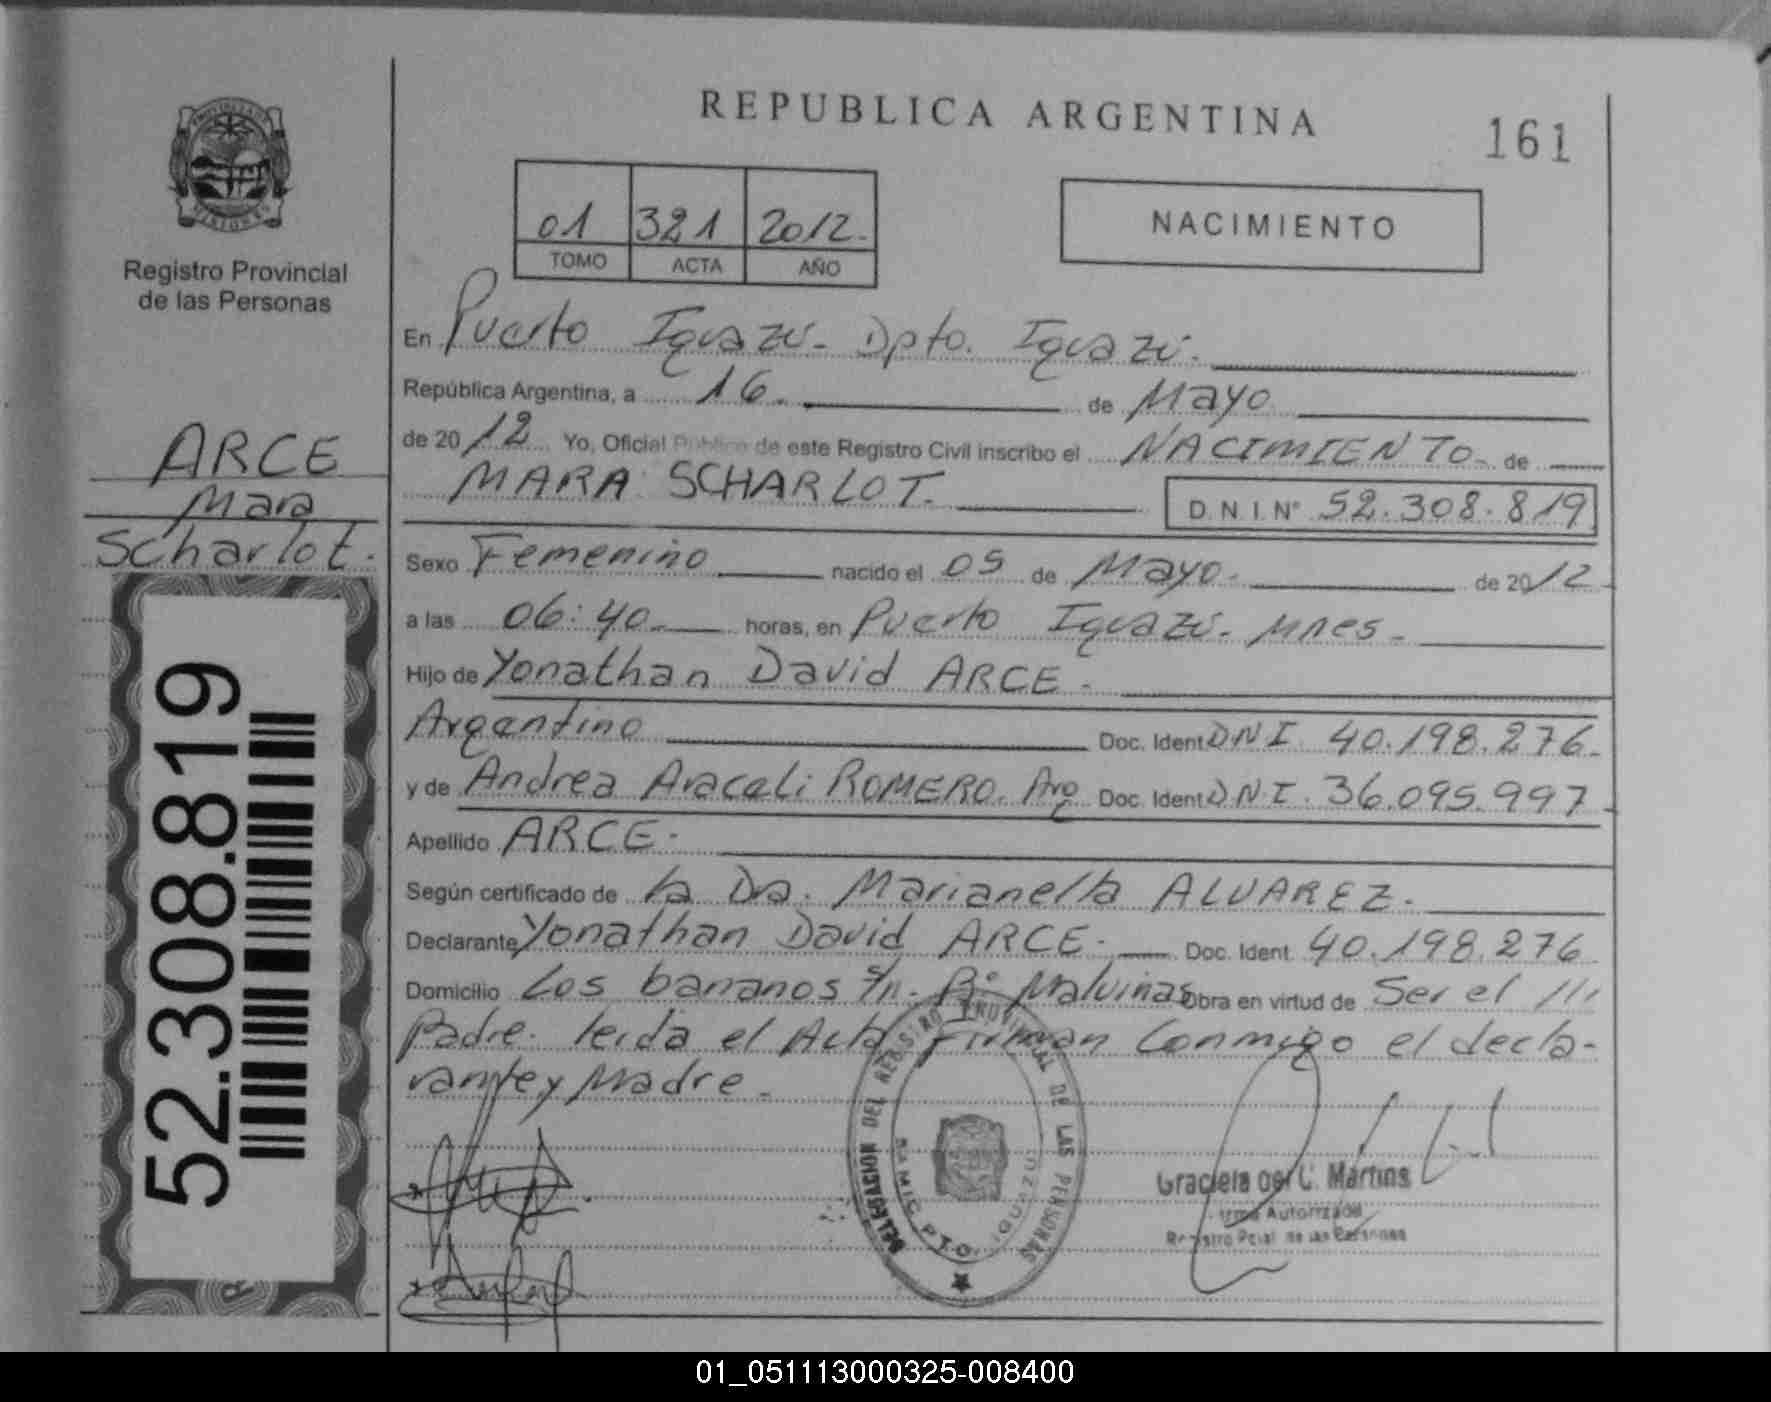 REPUBLICA ARGENTINA
161
PROVINCIA DE
MISIONES
Registro Provincial
de las Personas
01 321 2012.
TOMO ACTA AÑO
NACIMIENTO
En Puerto Iguazú- Dpto. Iguazú.
República Argentina, a 16. de Mayo
de 2012 Yo, Oficial Público de este Registro Civil inscribo el NACIMIENTO de
MARA SCHARLOT. D.N.I.N° 52.308.819
ARCE
Mara
Scharlot.
Sexo Femenino nacido el 05 de Mayo. de 2012
a las 06:40 horas, en Puerto Iguazú. Mnes.
Hijo de Yonathan David ARCE.
Argentino Doc. Ident DNI 40.198.276.
y de Andrea Araceli ROMERO. Arg Doc. Ident D.N.I. 36.095.997
Apellido ARCE.
Según certificado de la Dra. Marianella ALVAREZ.
Declarante Yonathan David ARCE. Doc. Ident. 40.198.276
Domicilio Los bananos s/n. B° Malvinas Obra en virtud de Ser el ///
Padre. leida el Acta Firman Conmigo el decla-
rante y Madre.
52.308.819
DELEGACION DEL REGISTRO PROVINCIAL DE LAS PERSONAS
PTO. IGUAZU
Graciela del C. Martins
Firma Autorizada
Registro Pcial de las Personas
R
01_051113000325-008400